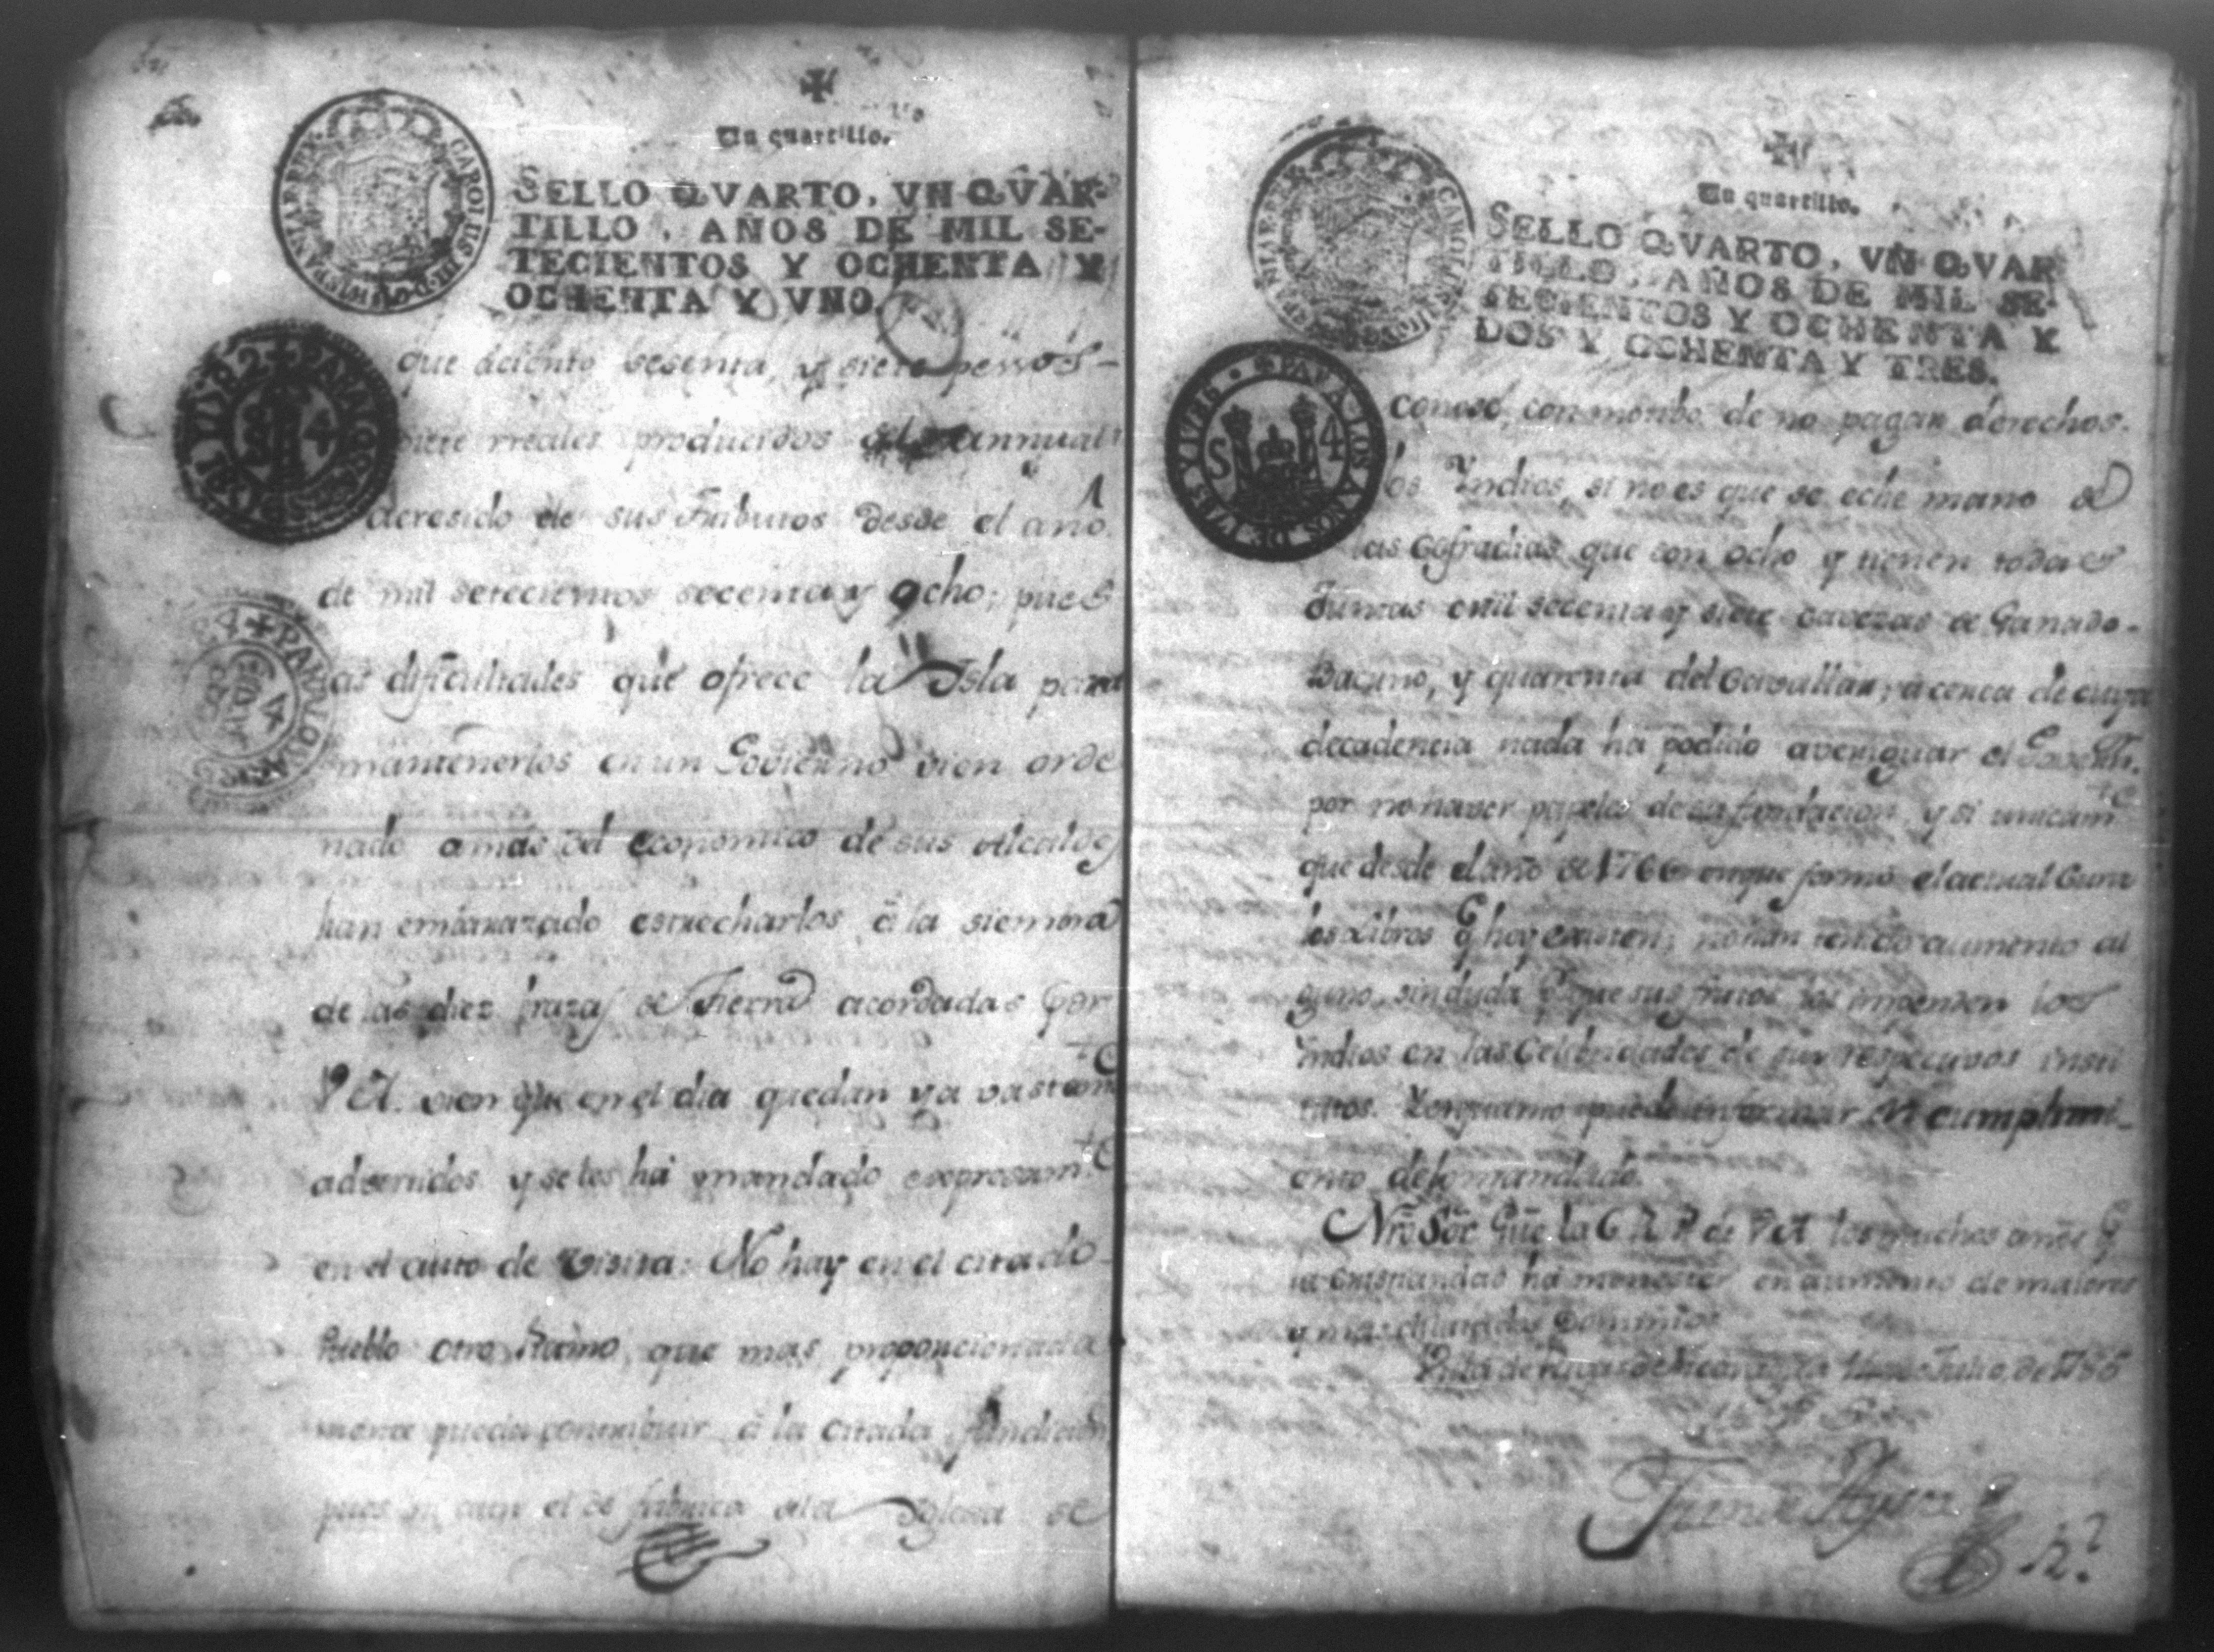 Un quartillo.
SELLO QVARTO, VN QVAR-
TILLO, AÑOS DE MIL SE-
TECIENTOS Y OCHENTA Y
OCHENTA Y VNO.
CAROLUS III D G HISPANIAR REX
que aciento sesenta, y siete pessos-
siete rreales producidos del annual
acresido de sus Tributos desde el año
de mil setecientos secenta y ocho; pues
las dificultades que ofrece la Isla para
mantenerlos en un Govierno vien orde
nado amas del economico de sus Alcaldes
han embarazado estrecharlos, â la siembra
de las diez brazas de Tierra acordadas por
V A. vien que en el dia quedan ya vastamte
advertidos y se les ha mandado expresamte
en el auto de visita: No hay en el citado
Pueblo otro Ramo, que mas proporcionada
mente pueda contribuir â la citada fundicion
pues ni aun el de fabrica dela Iglesia se
Un quartillo.
SELLO QVARTO, VN QVAR
TILLO, AÑOS DE MIL SE-
TECIENTOS Y OCHENTA Y
DOS Y OCHENTA Y TRES.
PARA LOS AÑOS DE 1785 Y 1786
S 4
conose, con motibo de no pagar derechos.
los Yndios, si no es que se eche mano de
las Cofradias que son ocho y tienen todas
Juntas mil secenta y siete cavezas de Ganado-
Bacuno, y quarenta del Cavallar; acerca de cuya
decadencia nada ha podido averiguar el
por no haver papeles de su fundacion, y si unicamte
que desde el año de 1766 enque formó el actual Cura
los Libros q hoy existen, no han tenido aumento al
guno, sin duda pque sus frutos los imvierten los
Yndios en las Celebridades de sus respectivos insti
tutos. Es quanto puede informar en cumplimi-
ento delo mandado.
Nrô Sôr Gûe la C. R. P. de V A los muchos años q
la Christiandad ha menester en aumento de maiores
y mas dilatados Dominios
Villa de Rivas de Nicaragua Julio, de 1785